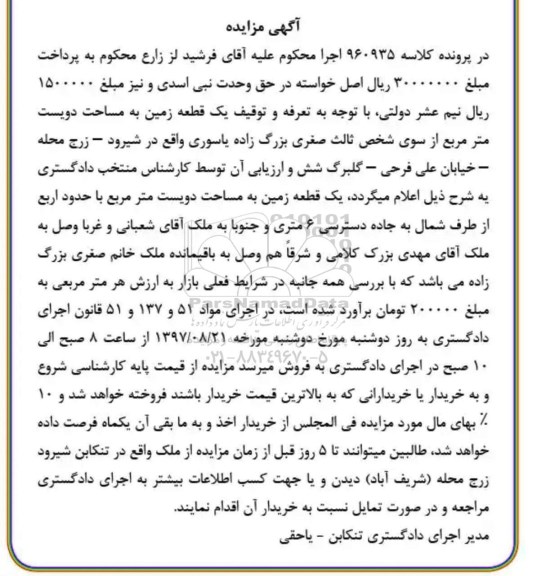 آگهی مزایده
در پرونده کلاسه ۹۶۰۹۳۵ اجرا محکوم علیه آقای فرشید لز زارع محکوم به پرداخت
مبلغ ۳۰۰۰۰۰۰۰ ریال اصل خواسته در حق وحدت نبی اسدی و نیز مبلغ ۱۵۰۰۰۰۰
ریال نیم عشر دولتی، با توجه به تعرفه و توقیف یک قطعه زمین به مساحت دویست
متر مربع از سوی شخص ثالث صغری بزرگ زاده یاسوری واقع در شیرود – زرج محله
– خیابان علی فرحی – گلبرگ شش و ارزیابی آن توسط کارشناس منتخب دادگستری
به شرح ذیل اعلام میگردد، یک قطعه زمین به مساحت دویست متر مربع با حدود اربع
از طرف شمال به جاده دسترسی ۶ متری و جنوبا به ملک آقای شعبانی و غربا وصل به
ملک آقای مهدی بزرک کلامی و شرقاً هم وصل به باقیمانده ملک خانم صغری بزرگ
زاده می باشد که با بررسی همه جانبه در شرایط فعلی بازار به ارزش هر متر مربعی به
مبلغ ۲۰۰۰۰۰ تومان برآورد شده است، در اجرای مواد ۵۱ و ۱۳۷ و ۵۱ قانون اجرای
دادگستری به روز دوشنبه مورخ دوشنبه مورخه ۱۳۹۷/۰۸/۲۱ از ساعت ۸ صبح الی
۱۰ صبح در اجرای دادگستری به فروش میرسد مزایده از قیمت پایه کارشناسی شروع
و به خریدار یا خریدارانی که به بالاترین قیمت خریدار باشند فروخته خواهد شد و ۱۰
٪ بهای مال مورد مزایده فی المجلس از خریدار اخذ و به ما بقی آن یکماه فرصت داده
خواهد شد، طالبین میتوانند تا ۵ روز قبل از زمان مزایده از ملک واقع در تنکابن شیرود
زرج محله (شریف آباد) دیدن و یا جهت کسب اطلاعات بیشتر به اجرای دادگستری
مراجعه و در صورت تمایل نسبت به خریدار آن اقدام نمایند.
مدیر اجرای دادگستری تنکابن – یاحقی
ParsNamadData
۰۲۱-۸۸۳۴۹۶۷۰-۵